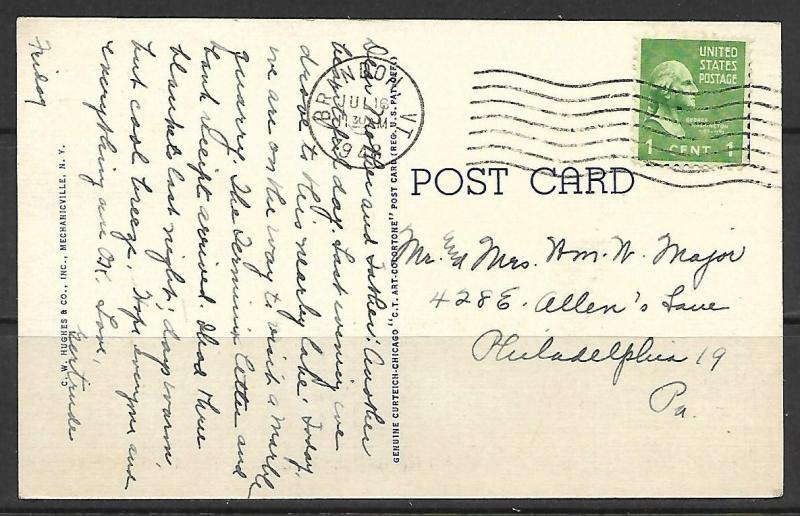 Friday
Dear Mother and Father: Another
beautiful day. Last evening we
drove to this nearby lake. Today,
we are on the way to visit a marble
quarry. The Germium letter and
bank receipt arrived. Had three
blankets last night; days warm,
but cool breeze. Hope everyone and
everything an OK. Love,
Gertrude
C. W. HUGHES & CO., INC., MECHANICVILLE, N. Y.
GENUINE CURTEICH-CHICAGO "C.T. ART-COLORTONE" POST CARD (REG. U.S. PAT. OFF.)
BRANDON
JUL 16
30 AM
194
VT.
UNITED
STATES
POSTAGE
GEORGE
WASHINGTON
1 CENT 1
POST CARD
Mr. and Mrs. Wm. W. Major
428 E. Allen's Lane
Philadelphia 19
Pa.